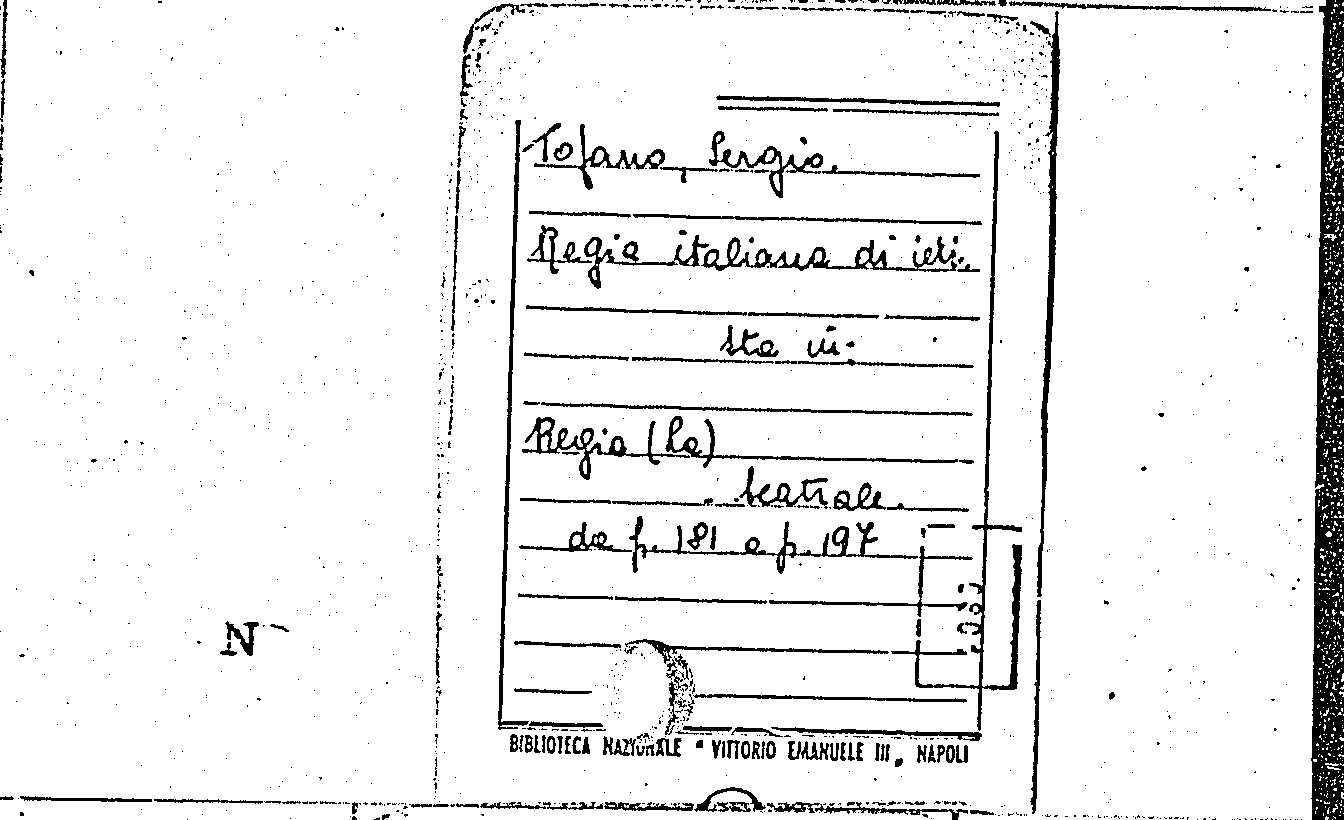 Tofano, Sergio.
Regia italiana di ieri.
sta in:
Regia (La)
teatrale.
da p. 181 a p. 197
N
BIBLIOTECA NAZIONALE " VITTORIO EMANUELE III „ NAPOLI